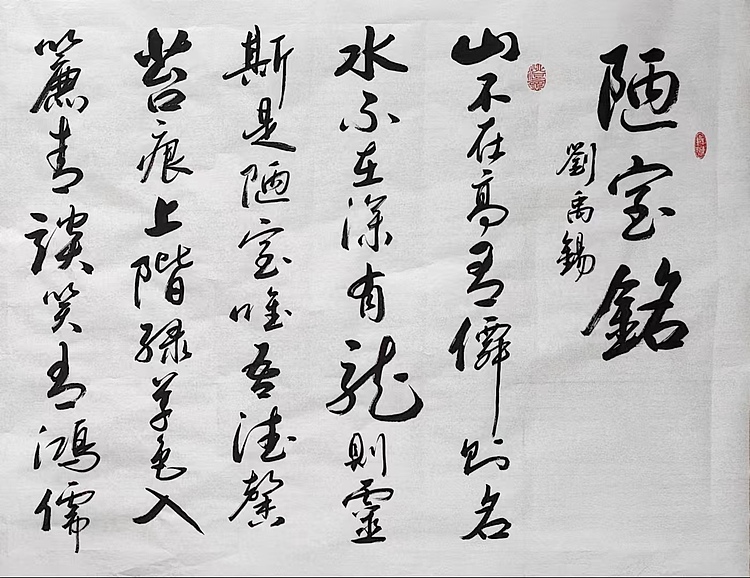 陋室銘
劉禹錫
山不在高有僊則名
水不在深有龍則靈
斯是陋室唯吾德馨
苔痕上階緑草色入
簾青談笑有鴻儒